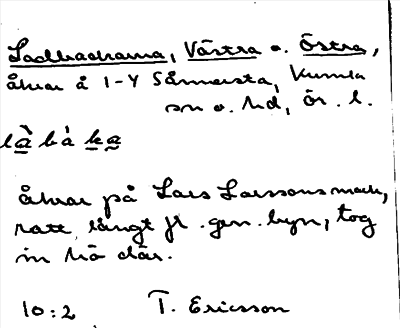 Ladbackarna, Västra o. Östra,
åkrar å 1-4 Sånnersta, Kumla
sn o. hd, Ör. l.
låbàka
åkrar på Lars Larssons mark,
rätt långt fr. gen. byn, tog
in hö där.
10:2 T. Ericsson